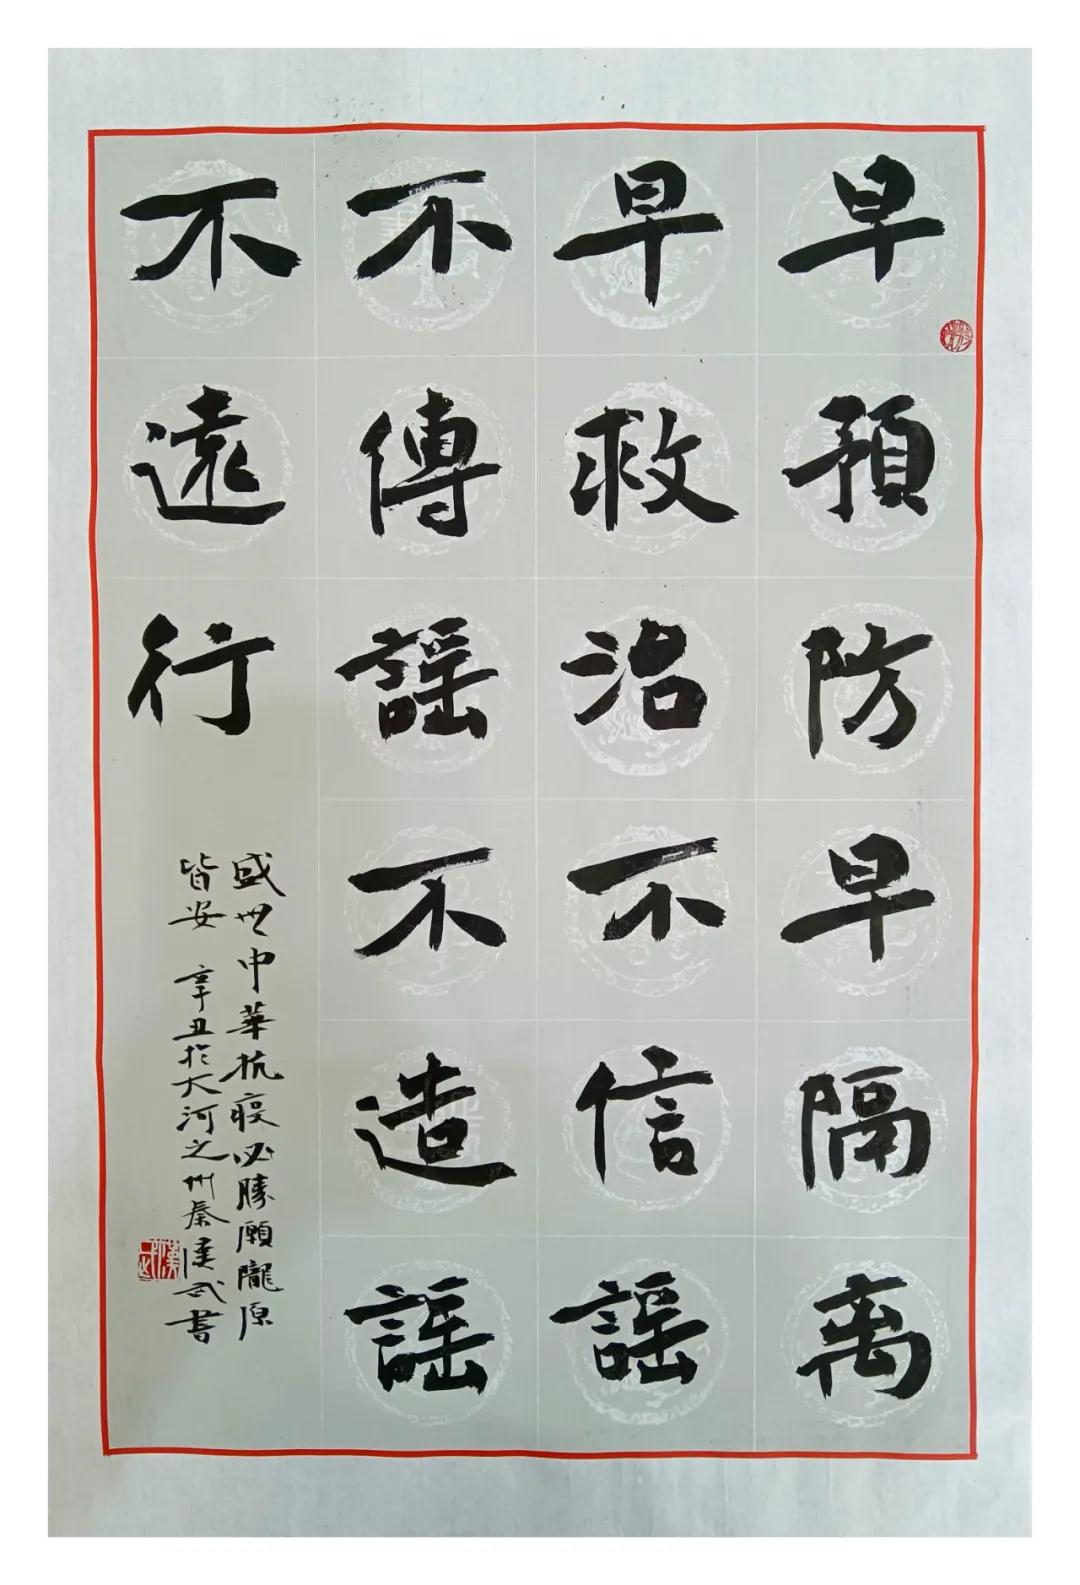 早預防早隔离
早救治不信謡
不傳謡不造謡
不遠行
盛世中華抗疫必勝願隴原
皆安 辛丑於大河之州秦漢武書